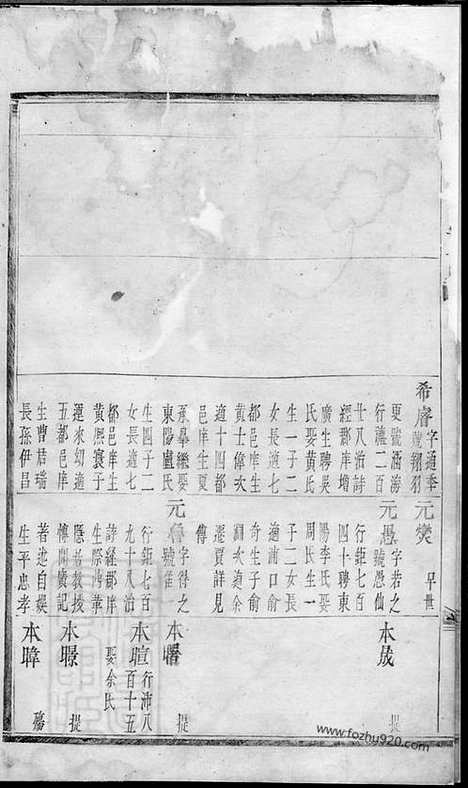 希睿 字通季
號翔羽
更號涵海
行瀍二百
廿八治詩
經郡庠增
廣生聘吳
氏娶黃氏
生一子二
女長適七
都邑庠生
黃士偉次
適十四都
邑庠生夏
承擧繼娶
東陽盧氏
生四子二
女長適七
都邑庠生
黃熙寰子
還來幼適
五都邑庠
生曹
長孫伊昌
元燮 早世
元愚 字若之
號愚仙
行鉅七百
四十聘東
陽李氏娶
周氏生一
子二女長
適浦口俞
奇生子俞
次適余
賈詳見
傳
元 字得之
號
行鉅七百
九十八治
詩經郡庠
生際清華
應哲教授
傳聞廣記
著述自娛
生平忠孝
本晟 提
本曙 提
本暄 行沛八
百十五
娶余氏
本暻 提
本暐 殤
www.fozhu920.com